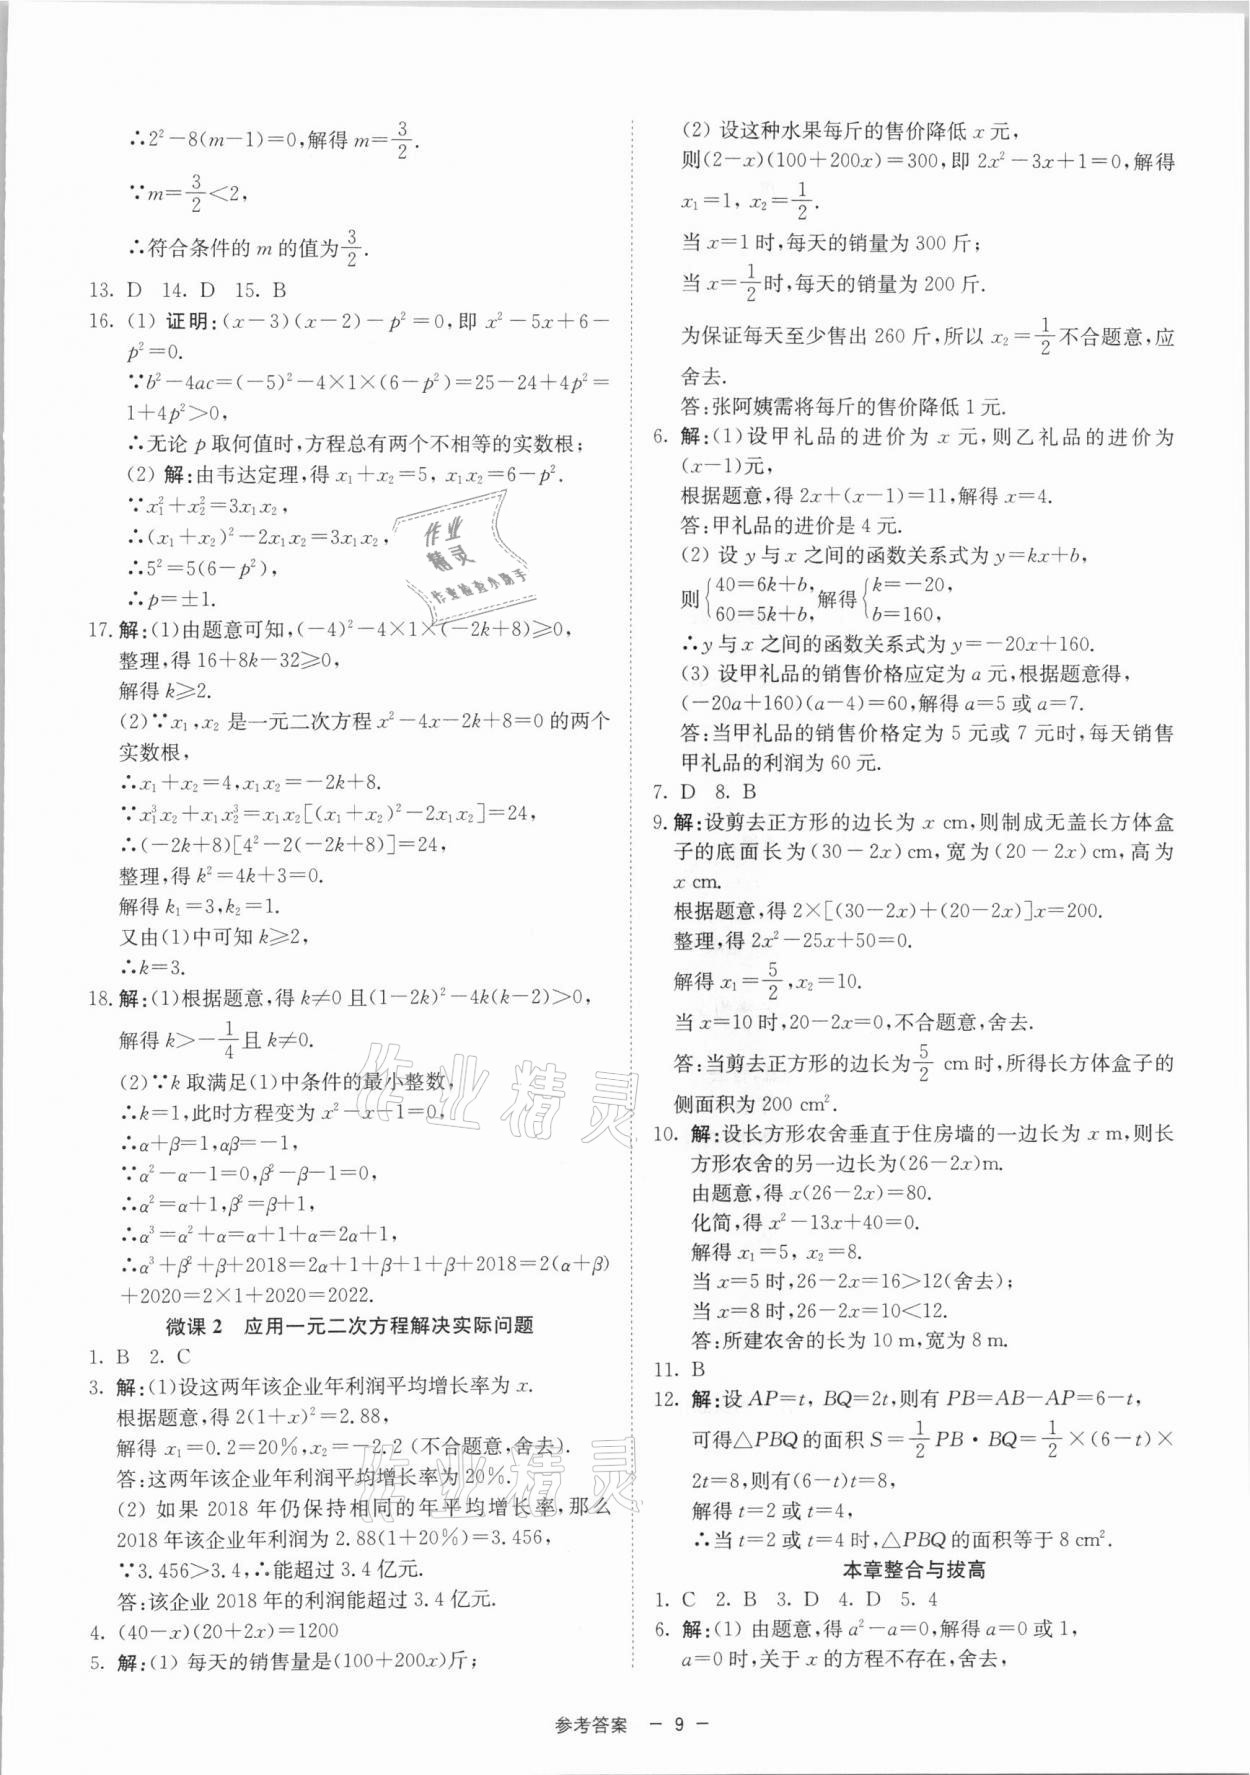 ∴2²－8(m－1)=0,解得 m=3/2.
∵m=3/2<2,
∴符合条件的 m 的值为3/2.
13. D 14. D 15. B
16. (1) 证明:(x－3)(x－2)－p²=0,即 x²－5x+6－
p²=0.
∵b²－4ac=(－5)²－4×1×(6－p²)=25－24+4p²=
1+4p²>0,
∴无论 p 取何值时,方程总有两个不相等的实数根;
(2) 解:由韦达定理,得 x₁+x₂=5, x₁x₂=6－p².
∵x₁²+x₂²=3x₁x₂,
∴(x₁+x₂)²－2x₁x₂=3x₁x₂,
∴5²=5(6－p²),
∴p=±1.
17. 解:(1)由题意可知,(－4)²－4×1×(－2k+8)≥0,
整理,得 16+8k－32≥0,
解得 k≥2.
(2)∵x₁,x₂ 是一元二次方程 x²－4x－2k+8=0 的两个
实数根,
∴x₁+x₂=4,x₁x₂=－2k+8.
∵x₁³x₂+x₁x₂³=x₁x₂[(x₁+x₂)²－2x₁x₂]=24,
∴(－2k+8)[4²－2(－2k+8)]=24,
整理,得 k²=4k+3=0.
解得 k₁=3,k₂=1.
又由(1)中可知 k≥2,
∴k=3.
18. 解:(1)根据题意,得 k≠0 且(1－2k)²－4k(k－2)>0,
解得 k>－1/4且 k≠0.
(2)∵k 取满足(1)中条件的最小整数,
∴k=1,此时方程变为 x²－x－1=0,
∴α+β=1,αβ=－1,
∵α²－α－1=0,β²－β－1=0,
∴α²=α+1,β²=β+1,
∴α³=α²+α=α+1+α=2α+1,
∴α³+β²+β+2018=2α+1+β+1+β+2018=2(α+β)
+2020=2×1+2020=2022.
微课 2 应用一元二次方程解决实际问题
1. B 2. C
3. 解:(1)设这两年该企业年利润平均增长率为 x.
根据题意,得 2(1+x)²=2.88,
解得 x₁=0.2=20%,x₂=－2.2 (不合题意,舍去).
答:这两年该企业年利润平均增长率为 20%.
(2) 如果 2018 年仍保持相同的年平均增长率,那么
2018 年该企业年利润为 2.88(1+20%)=3.456,
∵3.456>3.4,∴能超过 3.4 亿元.
答:该企业 2018 年的利润能超过 3.4 亿元.
4. (40－x)(20+2x)=1200
5. 解:(1) 每天的销售量是(100+200x)斤;
(2) 设这种水果每斤的售价降低 x 元,
则(2－x)(100+200x)=300,即 2x²－3x+1=0,解得
x₁=1, x₂=1/2.
当 x=1 时,每天的销量为 300 斤;
当 x=1/2时,每天的销量为 200 斤.
为保证每天至少售出 260 斤,所以 x₂=1/2不合题意,应
舍去.
答:张阿姨需将每斤的售价降低 1 元.
6. 解:(1)设甲礼品的进价为 x 元,则乙礼品的进价为
(x－1)元,
根据题意,得 2x+(x－1)=11,解得 x=4.
答:甲礼品的进价是 4 元.
(2) 设 y 与 x 之间的函数关系式为 y=kx+b,
则{40=6k+b, 60=5k+b, 解得{k=－20, b=160,
∴y 与 x 之间的函数关系式为 y=－20x+160.
(3) 设甲礼品的销售价格应定为 a 元,根据题意得,
(－20a+160)(a－4)=60,解得 a=5 或 a=7.
答:当甲礼品的销售价格定为 5 元或 7 元时,每天销售
甲礼品的利润为 60 元.
7. D 8. B
9. 解:设剪去正方形的边长为 x cm,则制成无盖长方体盒
子的底面长为(30－2x)cm,宽为(20－2x)cm,高为
x cm.
根据题意,得 2×[(30－2x)+(20－2x)]x=200.
整理,得 2x²－25x+50=0.
解得 x₁=5/2,x₂=10.
当 x=10 时,20－2x=0,不合题意,舍去.
答:当剪去正方形的边长为5/2 cm 时,所得长方体盒子的
侧面积为 200 cm².
10. 解:设长方形农舍垂直于住房墙的一边长为 x m,则长
方形农舍的另一边长为(26－2x)m.
由题意,得 x(26－2x)=80.
化简,得 x²－13x+40=0.
解得 x₁=5, x₂=8.
当 x=5 时,26－2x=16>12(舍去);
当 x=8 时,26－2x=10<12.
答:所建农舍的长为 10 m,宽为 8 m.
11. B
12. 解:设 AP=t, BQ=2t,则有 PB=AB－AP=6－t,
可得△PBQ 的面积 S=1/2 PB·BQ=1/2×(6－t)×
2t=8,则有(6－t)t=8,
解得 t=2 或 t=4,
∴当 t=2 或 t=4 时,△PBQ 的面积等于 8 cm².
本章整合与拔高
1. C 2. B 3. D 4. D 5. 4
6. 解:(1) 由题意,得 a²－a=0,解得 a=0 或 1,
a=0 时,关于 x 的方程不存在,舍去,
参考答案 － 9 －
作业
精灵
作业检查小助手
作业精灵
作业精灵